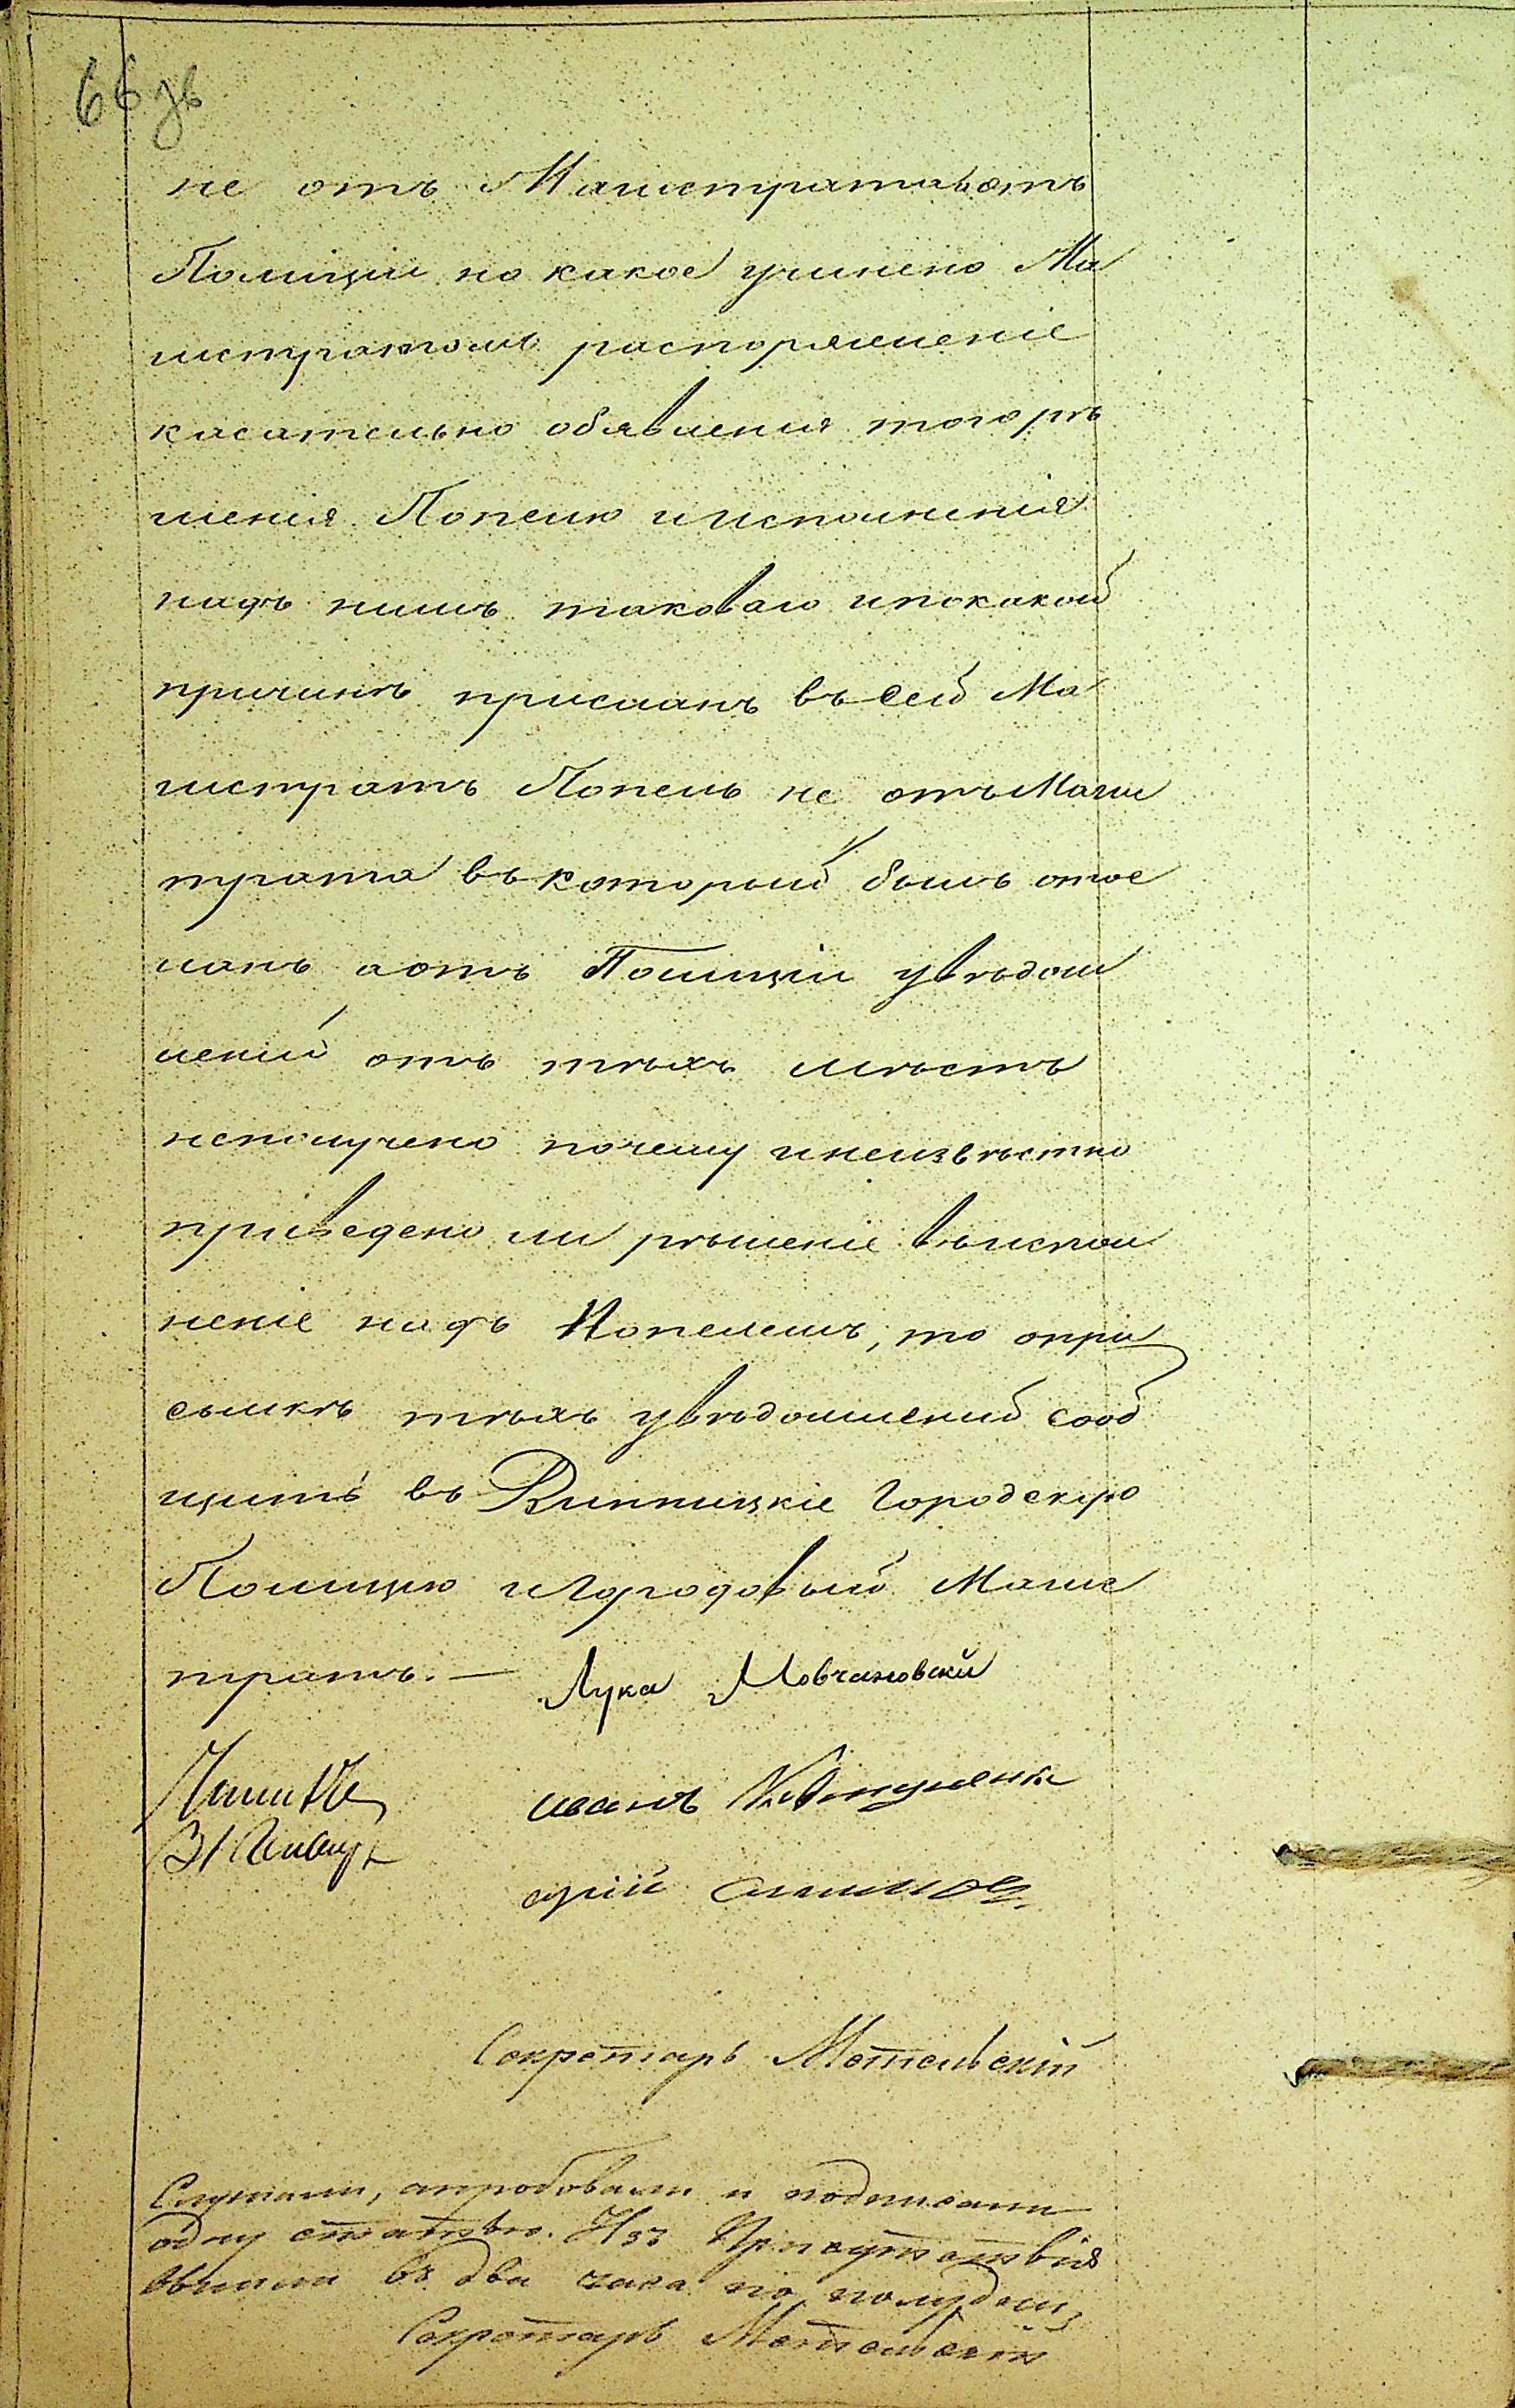 66 зв
не отъ Магистрата а отъ
Полиціи но какое учинено Ма
гистратомъ распоряженіе
касательно обявления того рѣ
шения Попелю и исполнения
надъ нимъ таковаго и по какой
причинѣ присланъ въ сей Ма
гистратъ Попель не отъ Магис
трата въ который былъ отос
ланъ а отъ Полиціи увѣдом
лений отъ тѣхъ мѣстъ
неполучено почему и неизвѣстно
приведено ли рѣшеніе въ испол
неніе надъ Попелемъ, то о при
сылкѣ тѣхъ увѣдомлений сооб
щить въ Винницкіе Городскую
Полицию и Городовый Магис
тратъ. —
Лука Мовчановскій
иванъ
Секретарь Мотельскій
Слушали, апробовали и подписали
одну статью. Изъ Присутствія
вышли въ два часа по полудни,
Секретарь Мотельскій